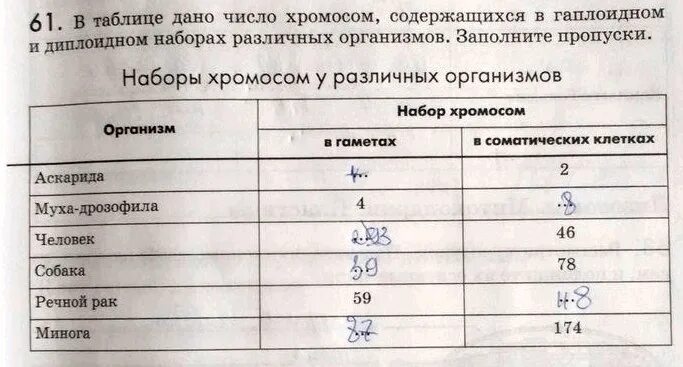 61. В таблице дано число хромосом, содержащихся в гаплоидном
и диплоидном наборах различных организмов. Заполните пропуски.
Наборы хромосом у различных организмов
Организм
Набор хромосом
в гаметах
в соматических клетках
Аскарида 2
Муха-дрозофила 4 8
Человек 46
Собака 39 78
Речной рак 59
Минога 87 174